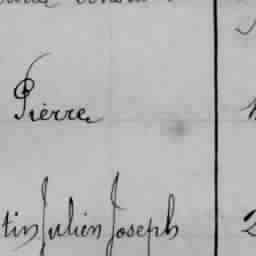 Pierre
tin Julien Joseph